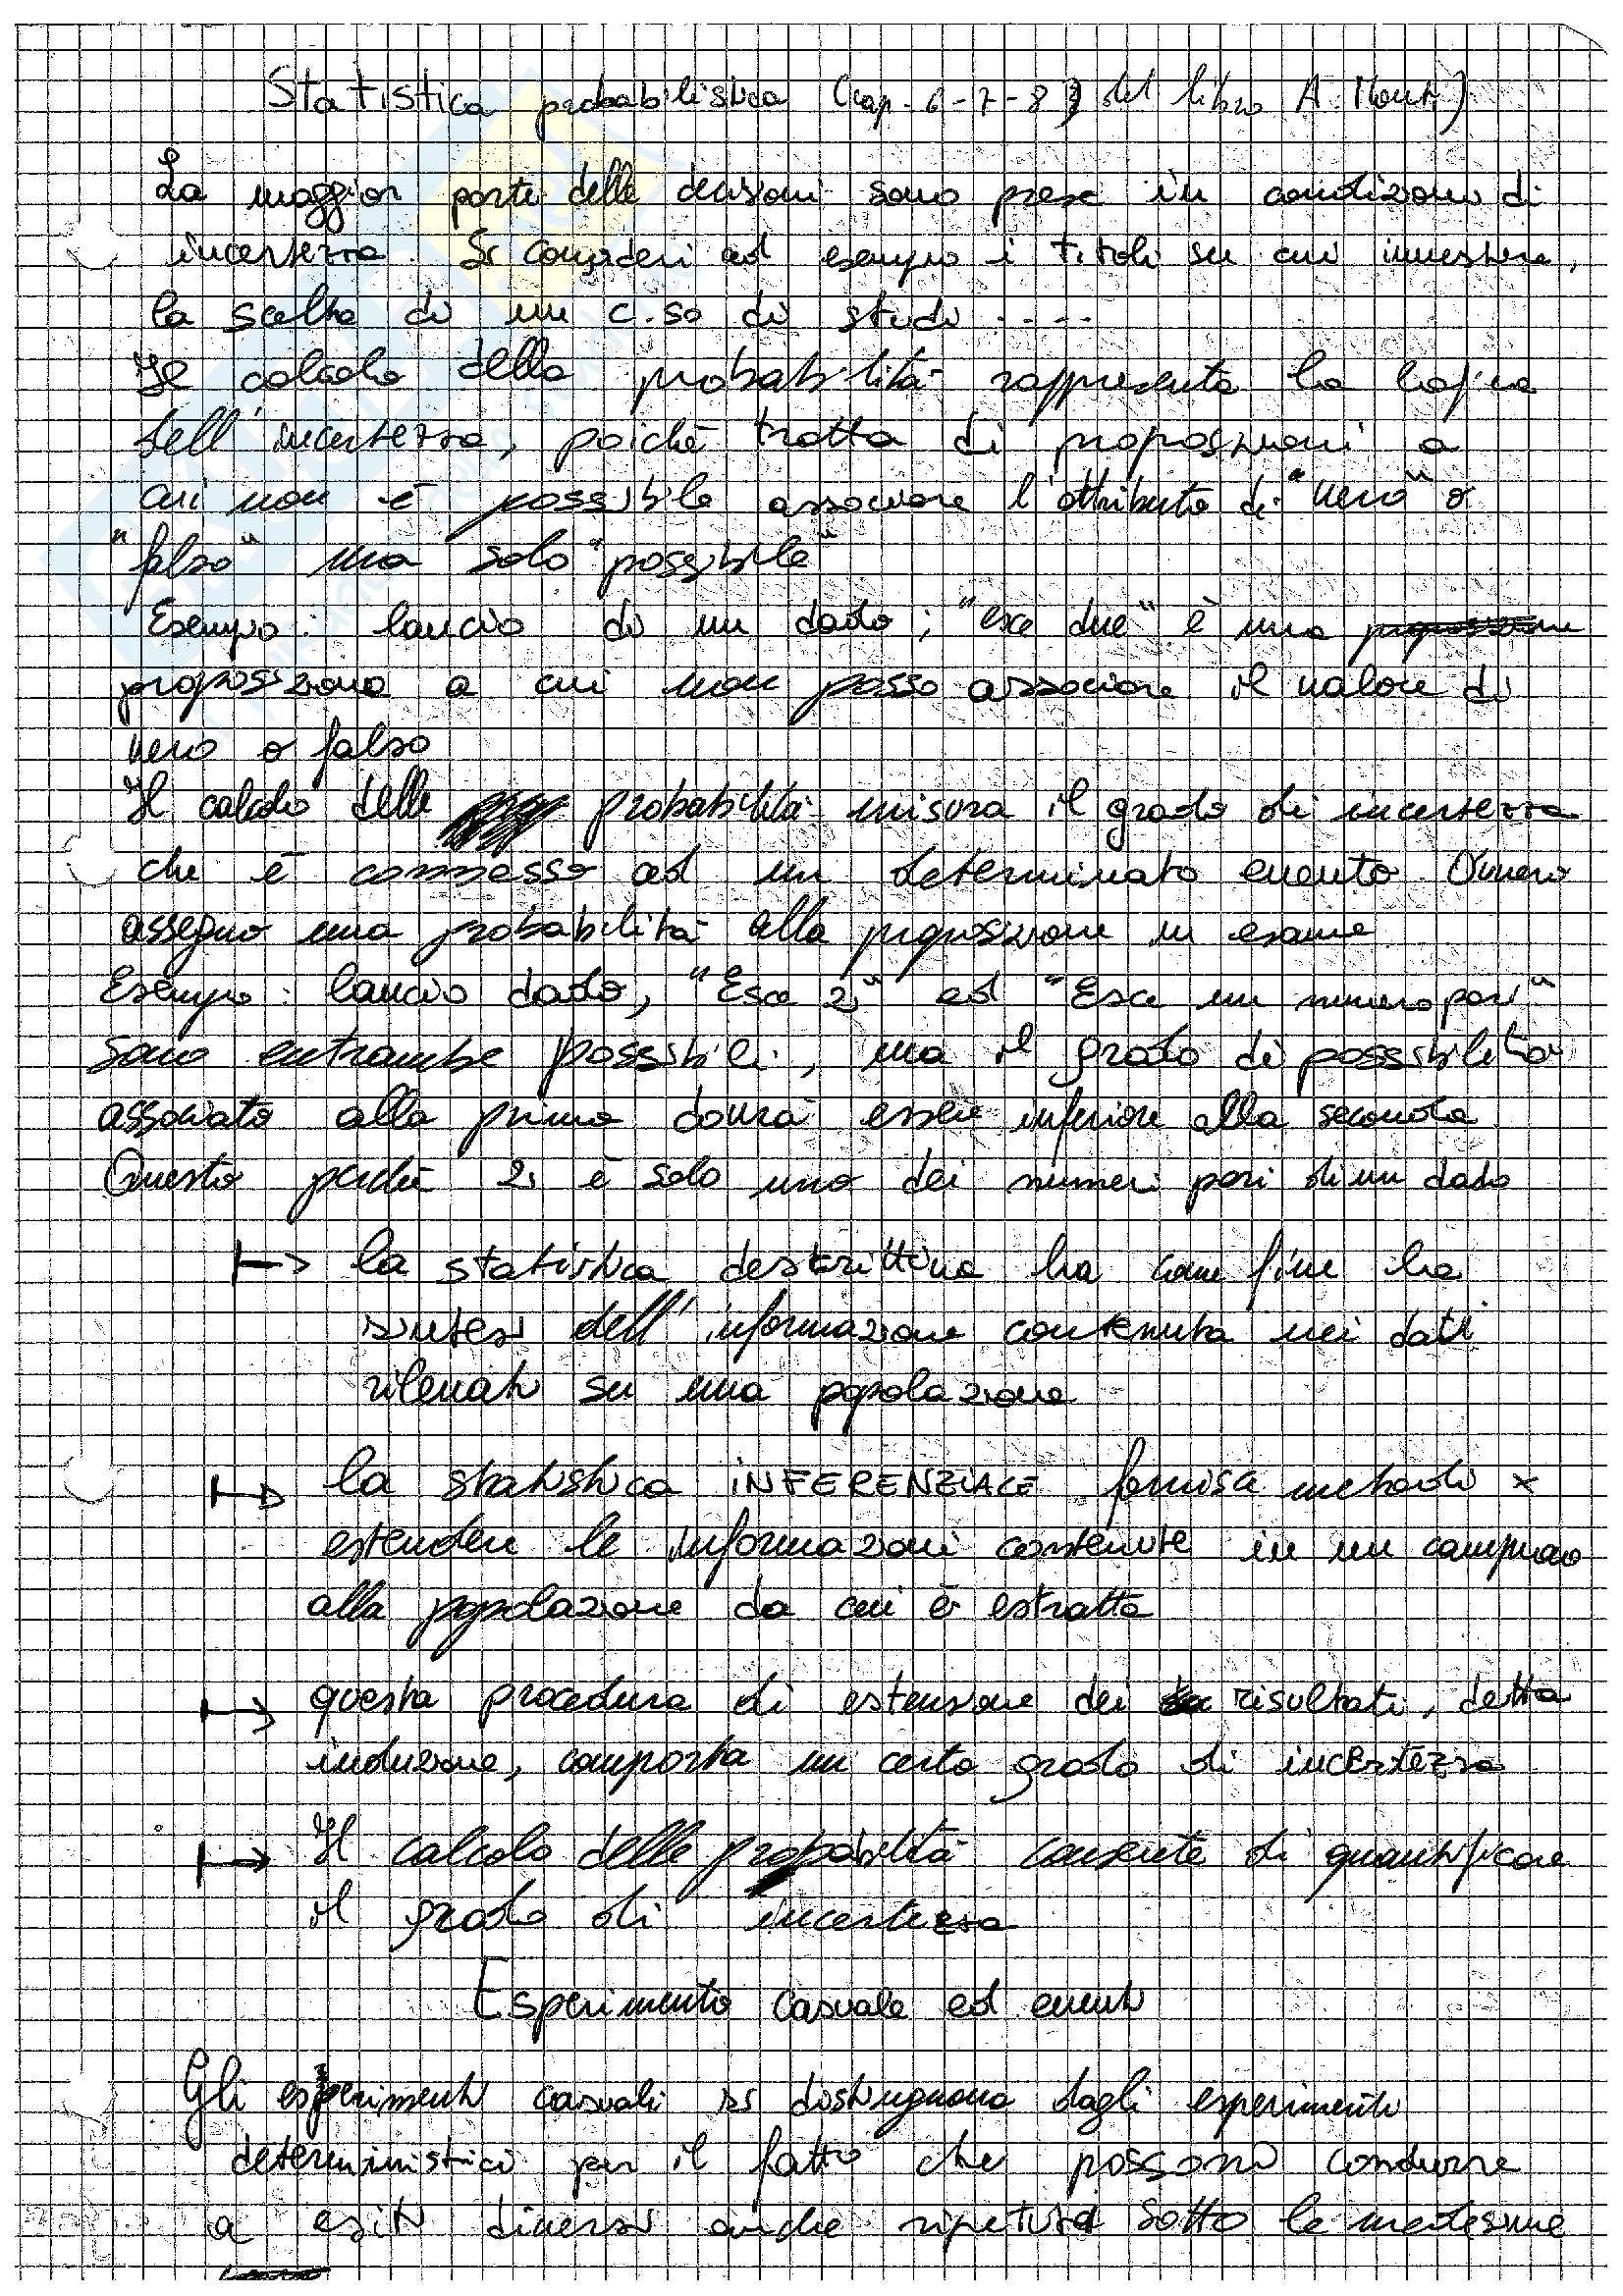 Statistica probabilistica (cap. 6-7-8) del libro A. Monti)
La maggior parte delle decisioni sono prese in condizioni di
incertezza. Si consideri ad esempio i titoli su cui investire,
la scelta di un c.so di studi ....
Il calcolo della probabilità rappresenta la logica
dell'incertezza, poichè tratta di proposizioni a
cui non è possibile associare l'attributo di "vero" o
"falso" ma solo "possibile"
Esempio: lancio di un dado; "esce due" è una proposizione
proposizione a cui non posso associare il valore di
vero o falso
Il calcolo delle probabilità misura il grado di incertezza
che è connesso ad un determinato evento. Ovvero
assegno una probabilità alla proposizione in esame
Esempio: lancio dado, "Esce 2" ed "Esce un numero pari"
sono entrambe possibili, ma il grado di possibilità
associato alla prima dovrà essere inferiore alla seconda
Questo perchè 2 è solo uno dei numeri pari di un dado
→ la statistica descrittiva ha come fine la
sintesi dell'informazione contenuta nei dati
rilevati su una popolazione
→ la statistica INFERENZIALE fornisce metodi x
estendere le informazioni contenute in un campione
alla popolazione da cui è estratta
→ questa procedura di estensione dei risultati, detta
induzione, comporta un certo grado di incertezza
→ Il calcolo delle probabilità consente di quantificare
il grado di incertezza
Esperimento casuale ed eventi
Gli esperimenti casuali si distinguono dagli esperimenti
deterministici per il fatto che possono condurre
a esiti diversi anche ripetuti sotto le medesime